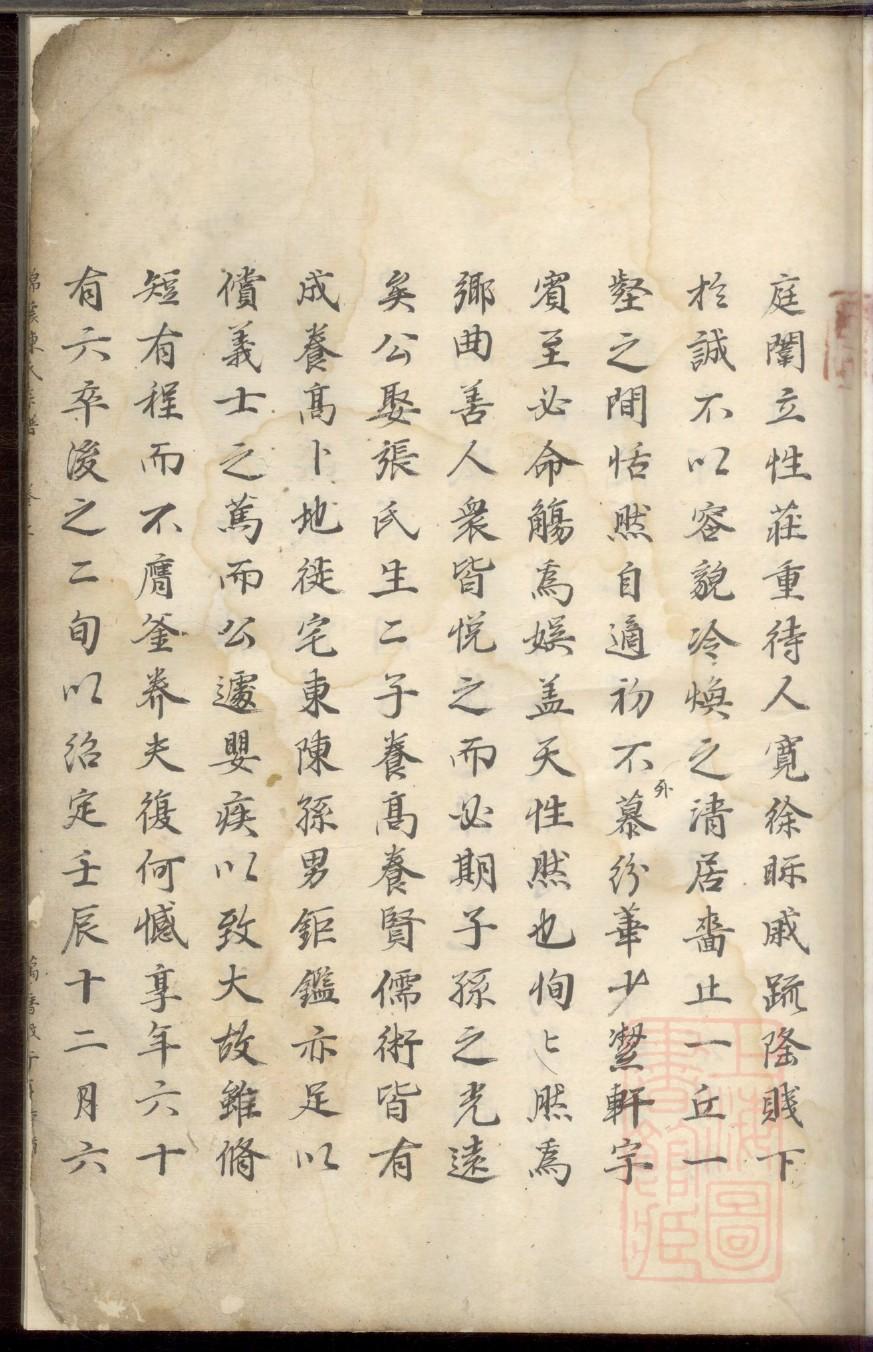 庭闈立性莊重待人寬徐眎戚疏隆賤下
扵誠不以容貌冷煥之清居嗇止一丘一
壑之間恬然自適初不外慕紛華少檠軒字
賓至必命觴爲娱盖天性然也恂〻然爲
鄉曲善人衆皆悦之而必期子孫之光遠
矣公娶張氏生二子養髙養賢儒術皆有
成養髙卜地徙宅東陳孫男鉅鑑亦足以
償義士之蔫而公遽嬰疾以致大故雖脩
短有程而不膺釡养夫復何憾享年六十
有六卒後之二旬以紹定壬辰十二月六
上海圖書館藏